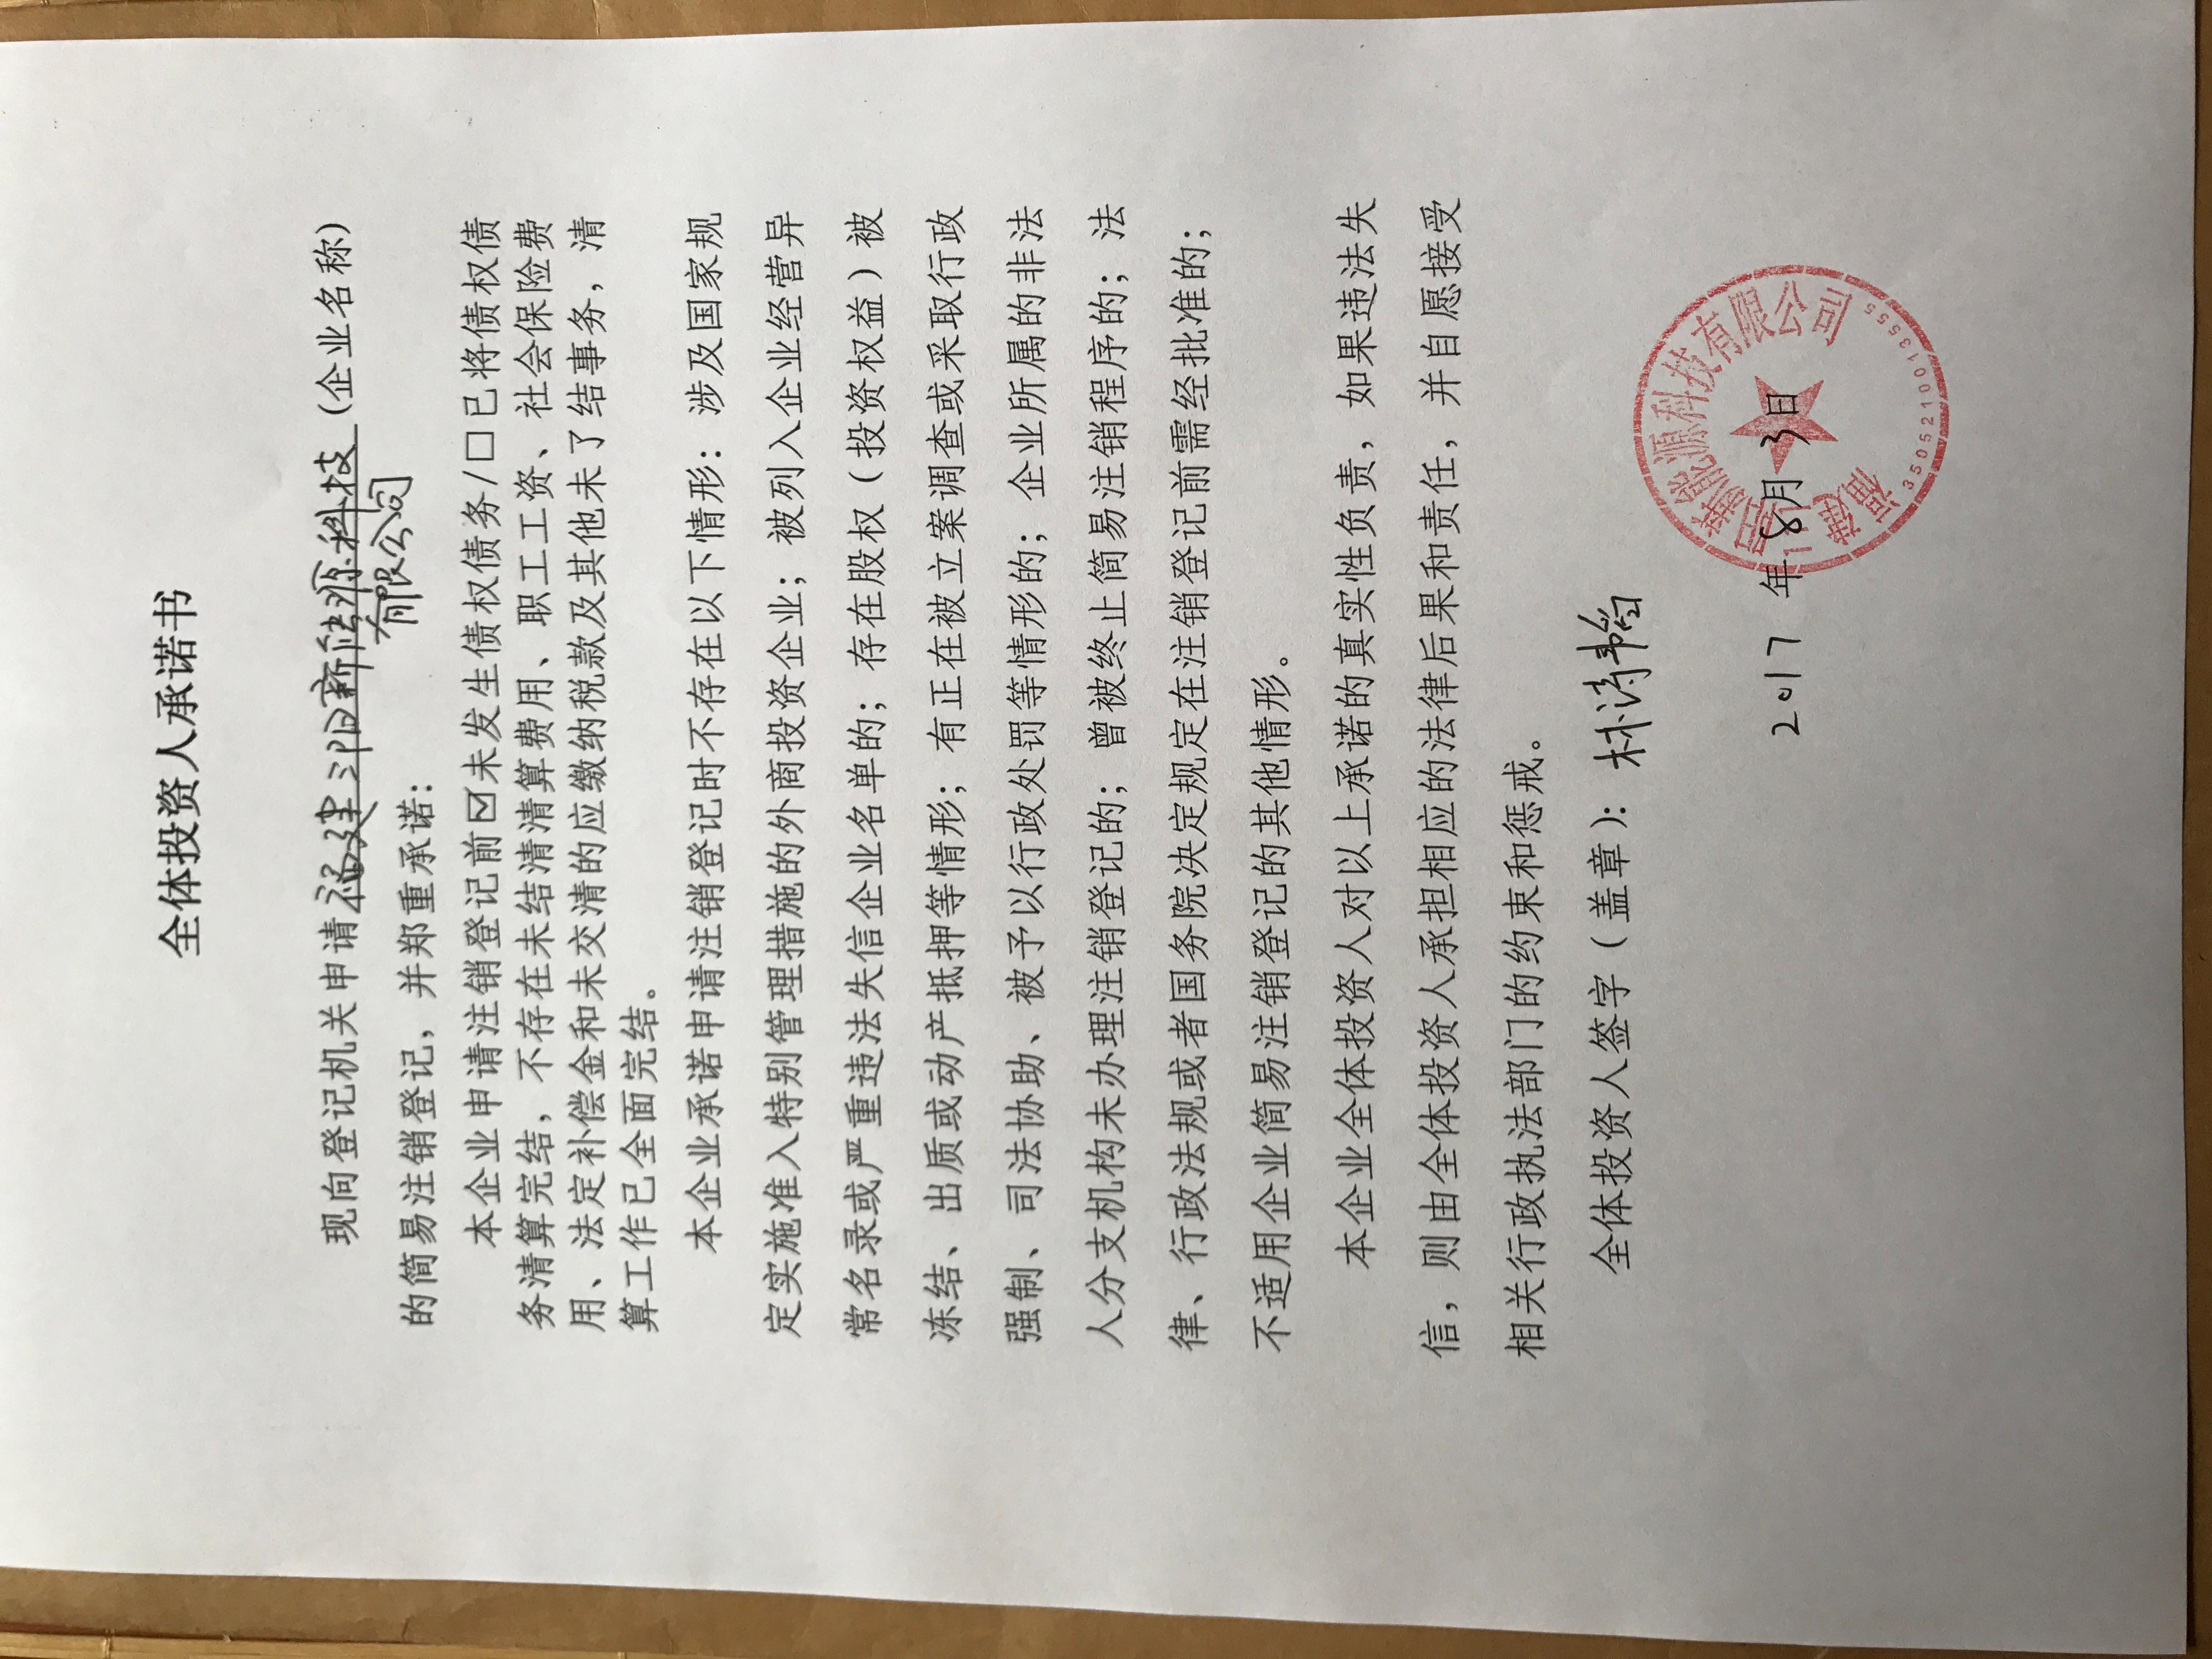 全体投资人承诺书
现向登记机关申请福建三阳新能源科技(企业名称)
有限公司
的简易注销登记，并郑重承诺：
本企业申请注销登记前☑未发生债权债务/□已将债权债
务清算完结，不存在未结清清算费用、职工工资、社会保险费
用、法定补偿金和未交清的应缴纳税款及其他未了结事务，清
算工作已全面完结。
本企业承诺申请注销登记时不存在以下情形：涉及国家规
定实施准入特别管理措施的外商投资企业；被列入企业经营异
常名录或严重违法失信企业名单的；存在股权（投资权益）被
冻结、出质或动产抵押等情形；有正在被立案调查或采取行政
强制、司法协助、被予以行政处罚等情形的；企业所属的非法
人分支机构未办理注销登记的；曾被终止简易注销程序的；法
律、行政法规或者国务院决定规定在注销登记前需经批准的；
不适用企业简易注销登记的其他情形。
本企业全体投资人对以上承诺的真实性负责，如果违法失
信，则由全体投资人承担相应的法律后果和责任，并自愿接受
相关行政执法部门的约束和惩戒。
全体投资人签字（盖章）：林诗韩
2017年8月3日
新能源科技有限公司
福建
3505210013555